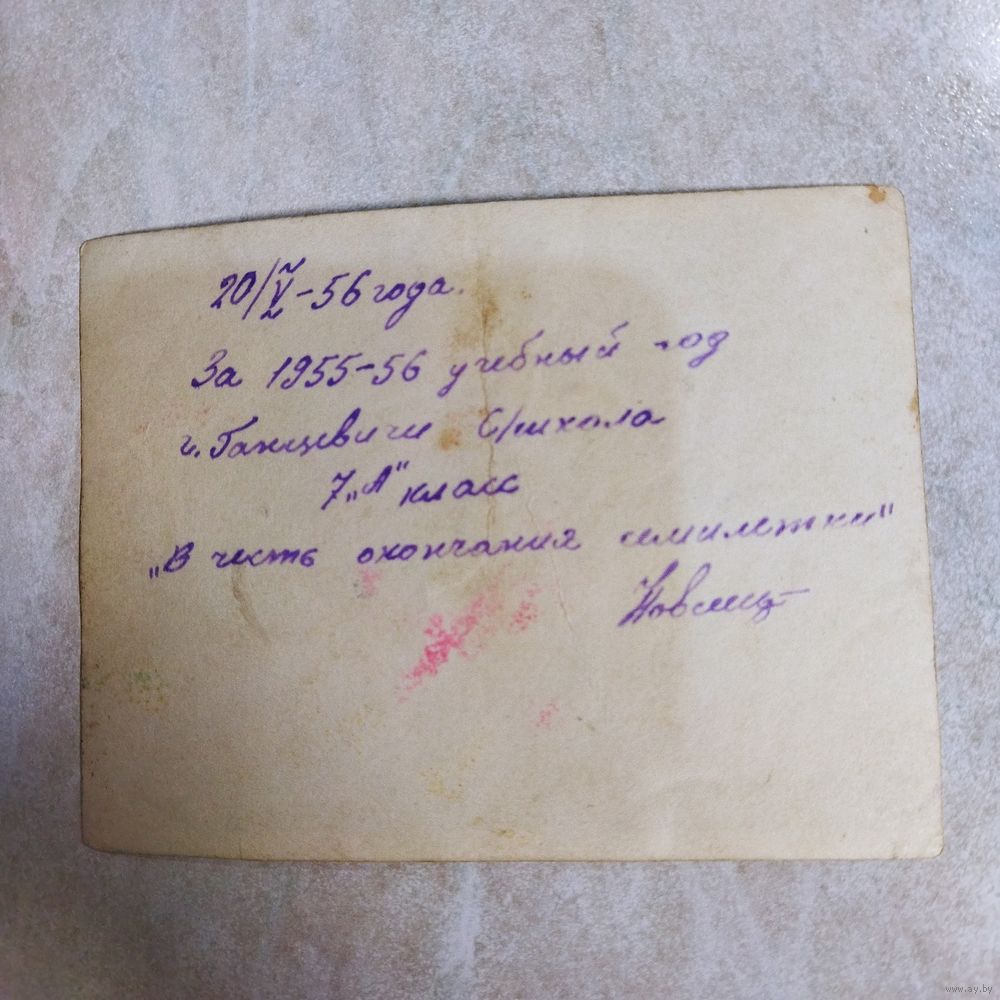 20/V-56 года.
За 1955-56 учебный год
г. Ганцевичи С/школа
7 „А" класс
„В честь окончания семилетки"
www.ay.by